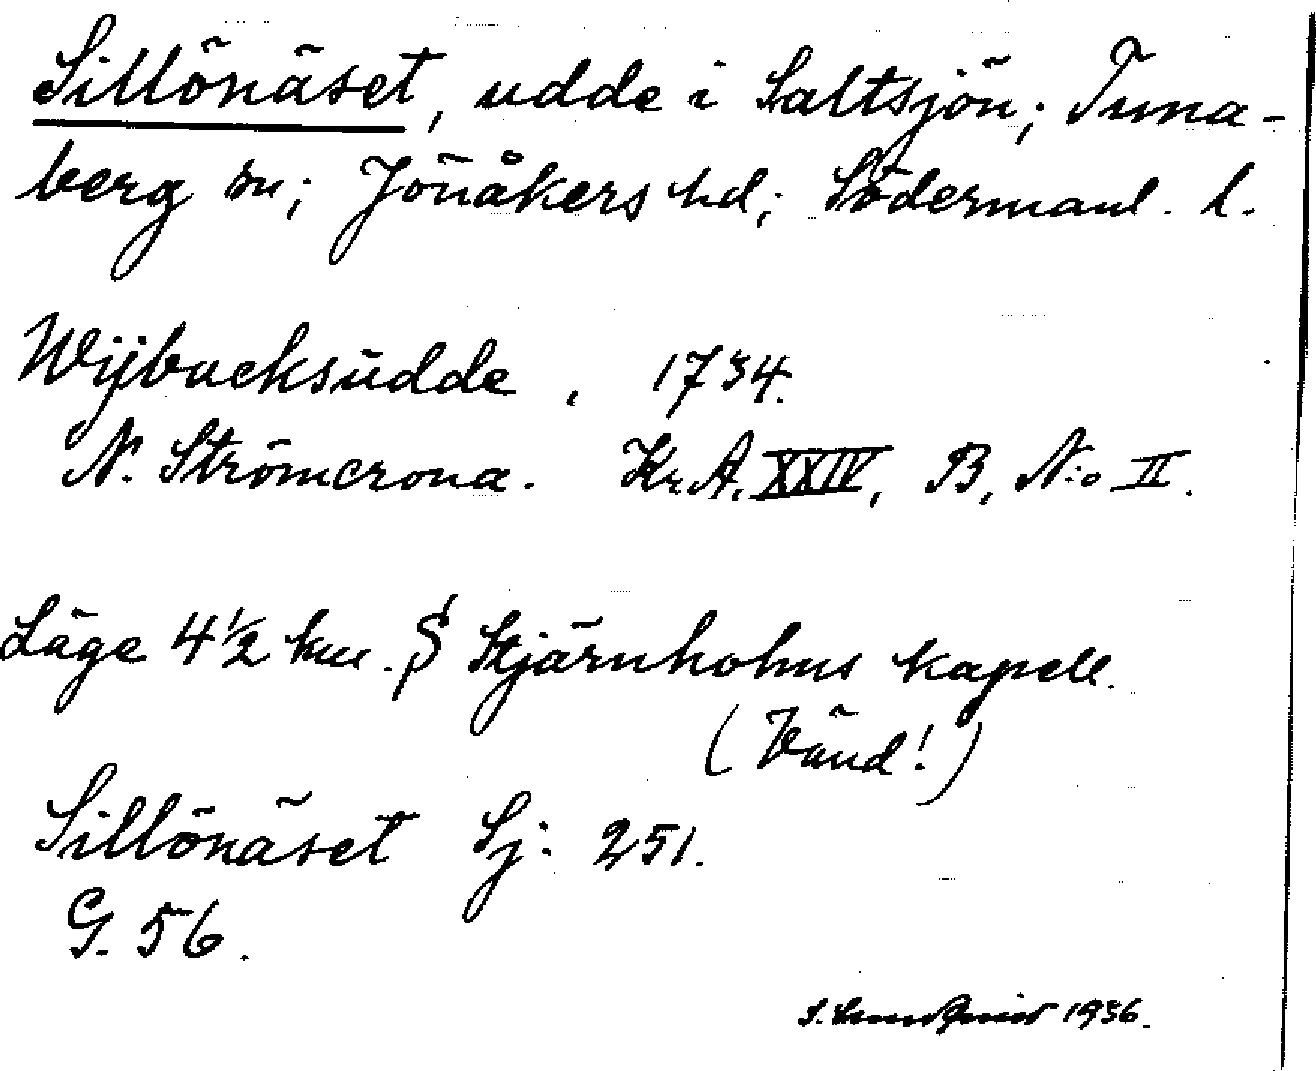 Sillönäset, udde i Saltsjön; Tuna-
berg sn; Jönåkers hd; Södermanl. l.
Wijbucksudde, 1734.
N. Strömcrona. Kr.A. XXIV, B, N:o II.
Läge 4 1/2 km. S Stjärnholms kapell.
(Vänd!)
Sillönäset Sj. 251.
G. 56.
1936.